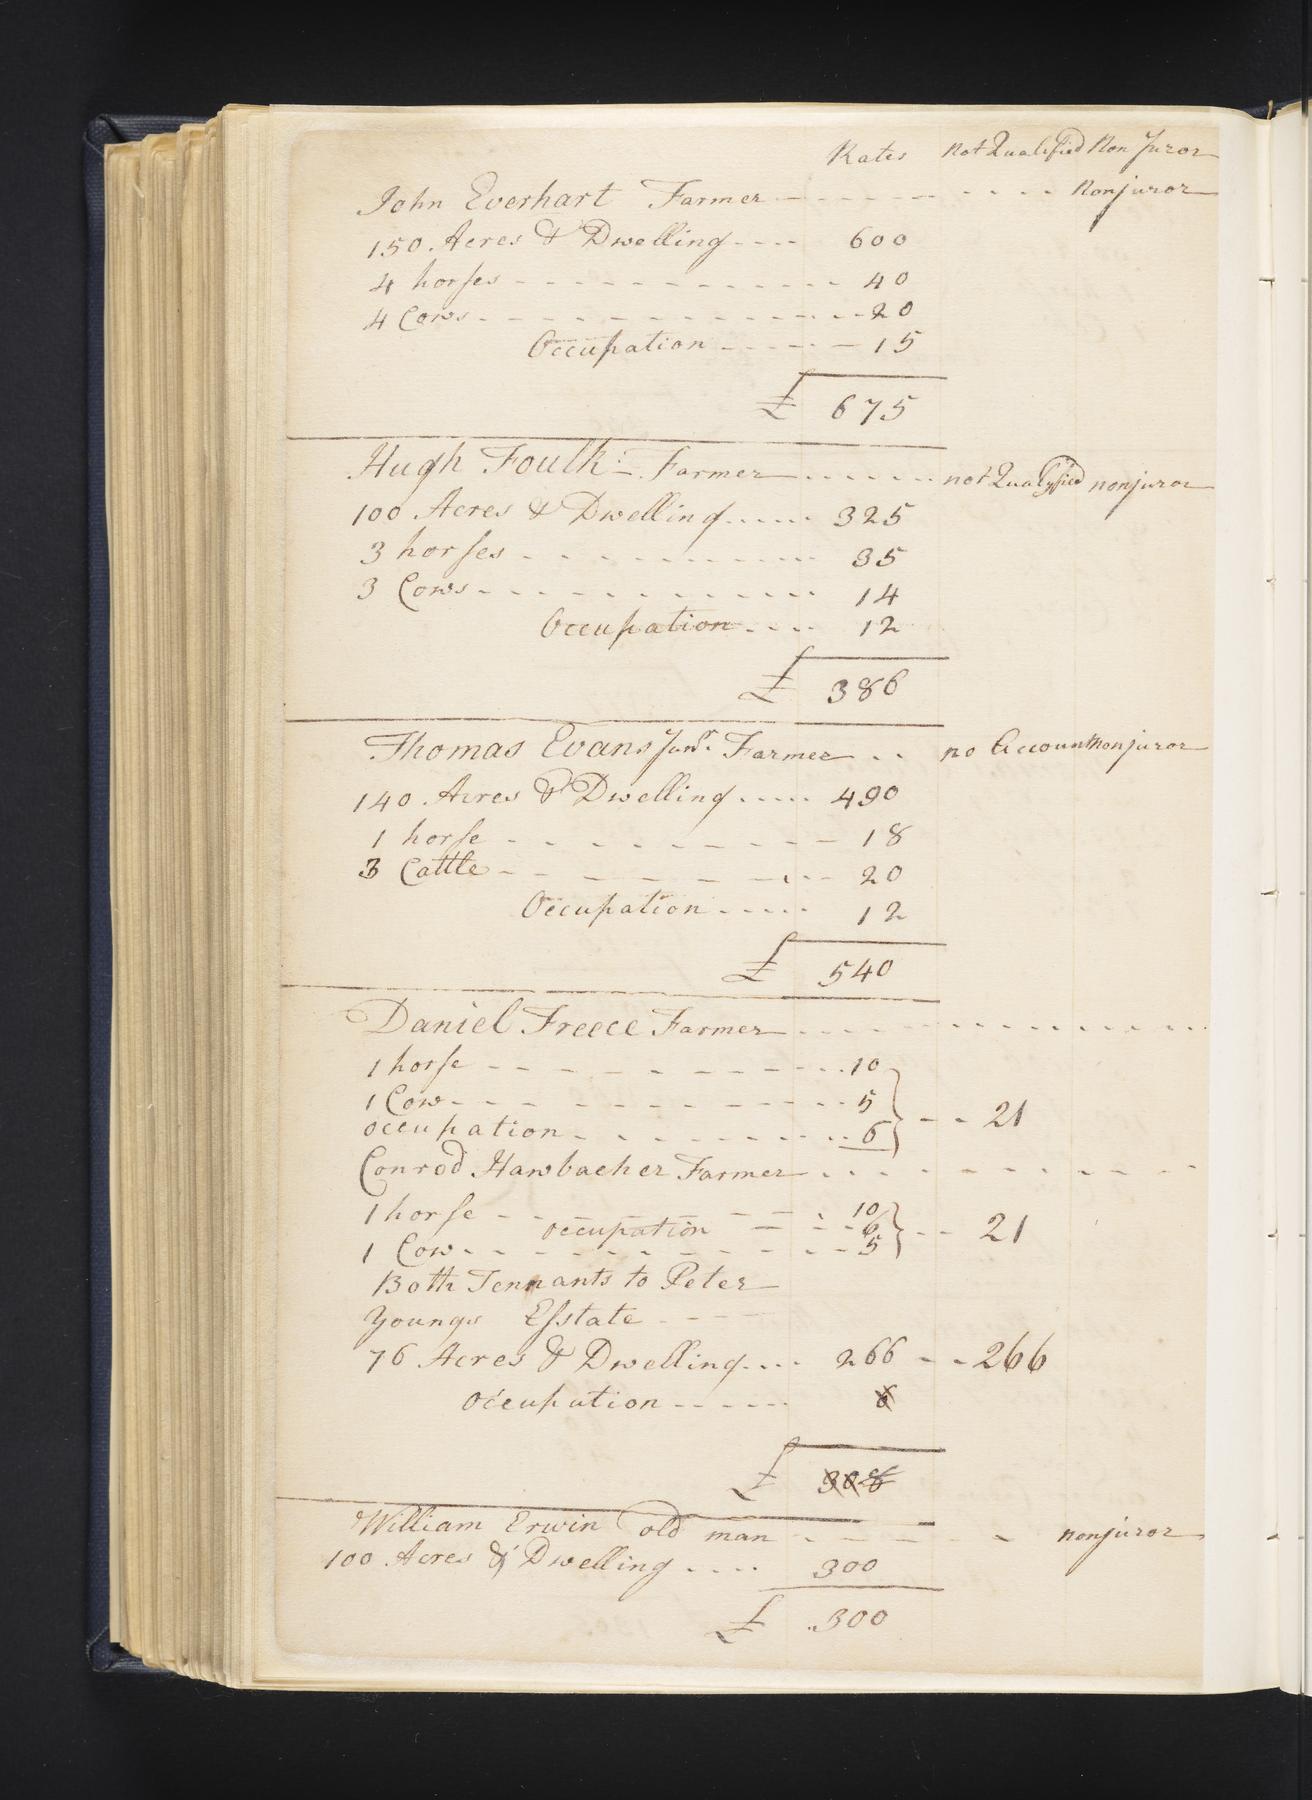 Rates not Qualified Non Juror
John Everhart Farmer Nonjuror
150 Acres & Dwelling 600
4 horses 40
4 Cows 20
Occupation 15
£ 675
Hugh Foulk Farmer not Qualified nonjuror
100 Acres & Dwelling 325
3 horses 35
3 Cows 14
Occupation 12
£ 386
Thomas Evans Junr. Farmer no Account nonjuror
140 Acres & Dwelling 490
1 horse 18
3 Cattle 20
Occupation 12
£ 540
Daniel Freece Farmer
1 horse 10
1 Cow 5 21
occupation 6
Conrod Hawbacher Farmer
1 horse 10
occupation 6 21
1 Cow 5
Both Tennants to Peter
Youngs Esstate
76 Acres & Dwelling 266 266
occupation 6
£ 308
William Erwin old man nonjuror
100 Acres & Dwelling 300
£ 300